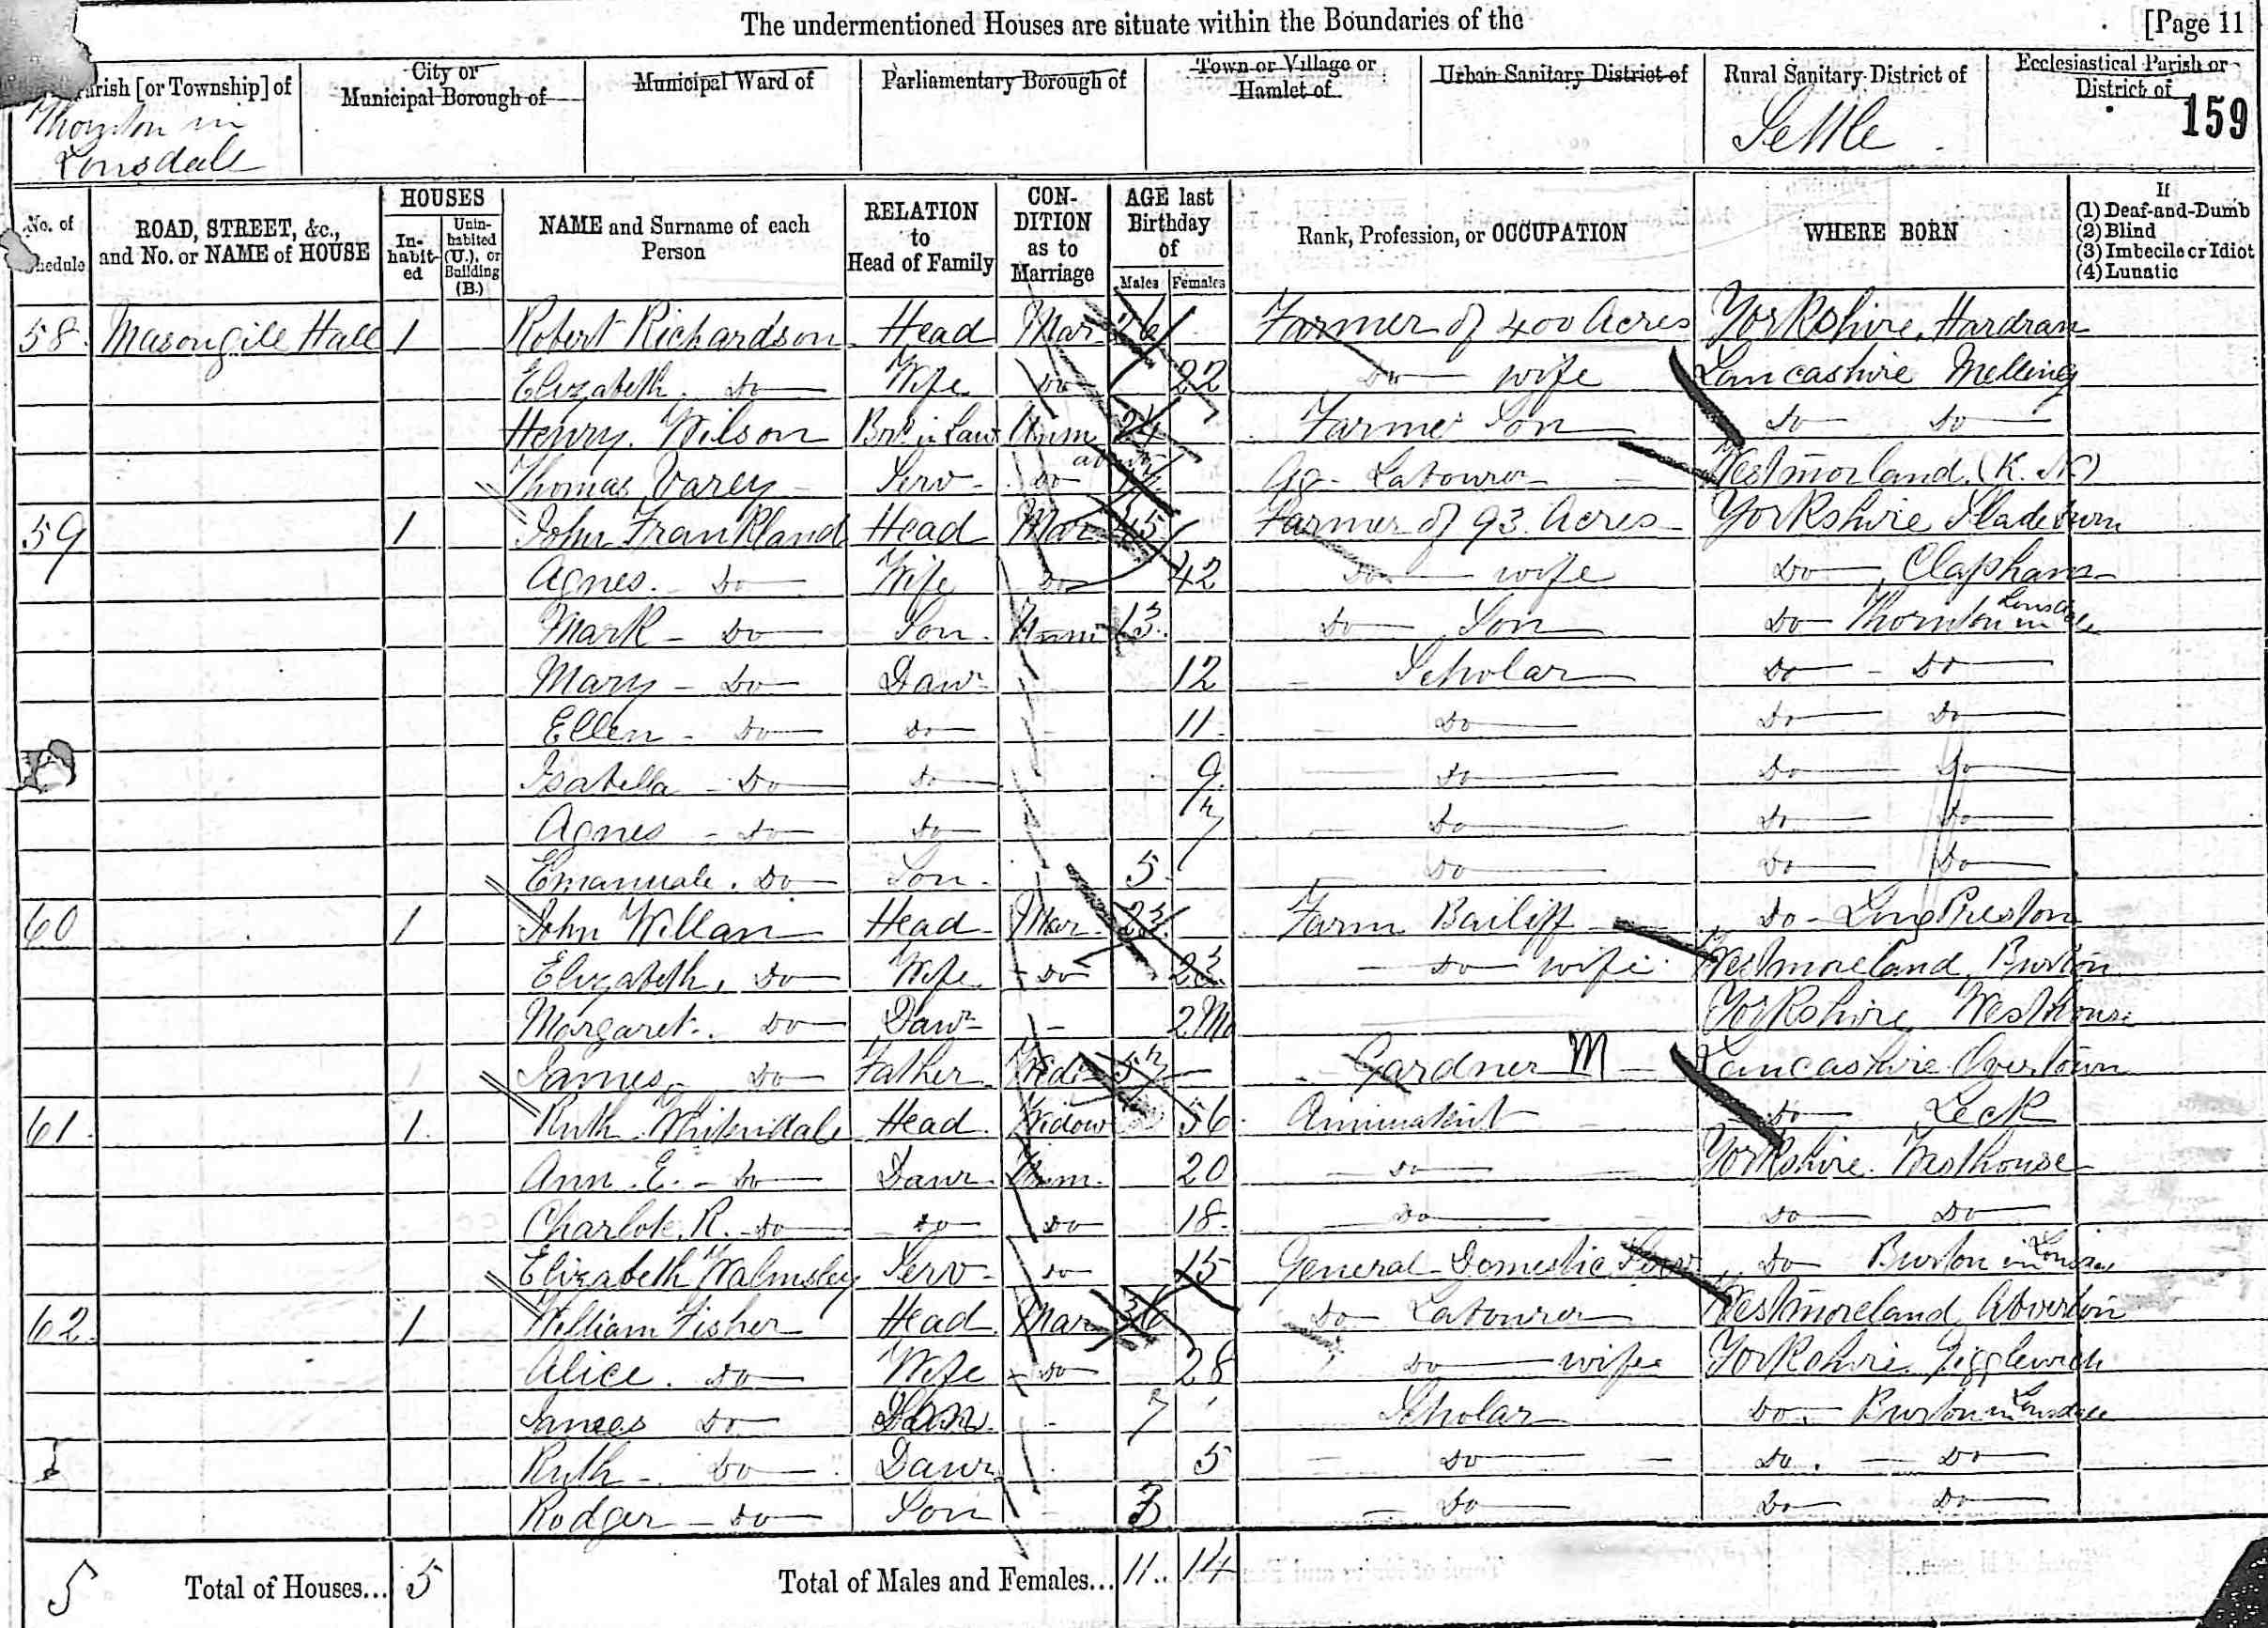 The undermentioned Houses are situate within the Boundaries of the [Page 11
arish [or Township] of City or Municipal Borough of Municipal Ward of Parliamentary Borough of Town or Village or Hamlet of Urban Sanitary District of Rural Sanitary District of Ecclesiastical Parish or District of
Thornton in Lonsdale Settle 159
No. of hedule ROAD, STREET, &c., and No. or NAME of HOUSE HOUSES In-habit-ed Unin-habited (U.), or Building (B.) NAME and Surname of each Person RELATION to Head of Family CON-DITION as to Marriage AGE last Birthday of Males Females Rank, Profession, or OCCUPATION WHERE BORN If (1) Deaf-and-Dumb (2) Blind (3) Imbecile or Idiot (4) Lunatic
58 Masongill Hall 1 Robert Richardson Head Mar 26 Farmer of 400 Acres Yorkshire, Hardraw
Elizabeth Do Wife Do 22 Do wife Lancashire Melling
Henry Wilson Bro in Law Unm 24 Farmer Son Do Do
Thomas Varey Serv Do Ag. Labourer Westmorland (K. N)
59 1 John Frankland Head Mar 45 Farmer of 93 Acres Yorkshire Sladeburn
Agnes Do Wife Do 42 Do wife Do Clapham
Mark Do Son Unm 13 Do Son Do Thornton in Lonsdale
Mary Do Dawr 12 Scholar Do Do
Ellen Do Do 11 Do Do Do
Isabella Do Do 9 Do Do Do
Agnes Do Do 7 Do Do Do
Emanuale Do Son 5 Do Do Do
60 1 John Willan Head Mar 23 Farm Bailiff Do Long Preston
Elizabeth Do Wife Do 23 Do wife Westmoreland Burton
Margaret Do Dawr 2 Mo Yorkshire Westhouse
James Do Father Widr 57 Gardner M Lancashire Overtown
61 1 Ruth Head Widow 56 Do Leck
Ann E. Do Dawr Unm 20 Do Yorkshire Westhouse
Charlote R. Do Do Do 18 Do Do Do
Elizabeth Walmsley Serv Do 15 General Domestic Serv Do Burton in Lonsdale
62 1 William Fisher Head Mar 36 Do Labourer Westmoreland
Alice Do Wife Do 28 Do wife Yorkshire Gigglewick
James Do Son 7 Scholar Do Burton in Lonsdale
Ruth Do Dawr 5 Do Do Do
Rodger Do Son 3 Do Do Do
5 Total of Houses... 5 Total of Males and Females... 11 14